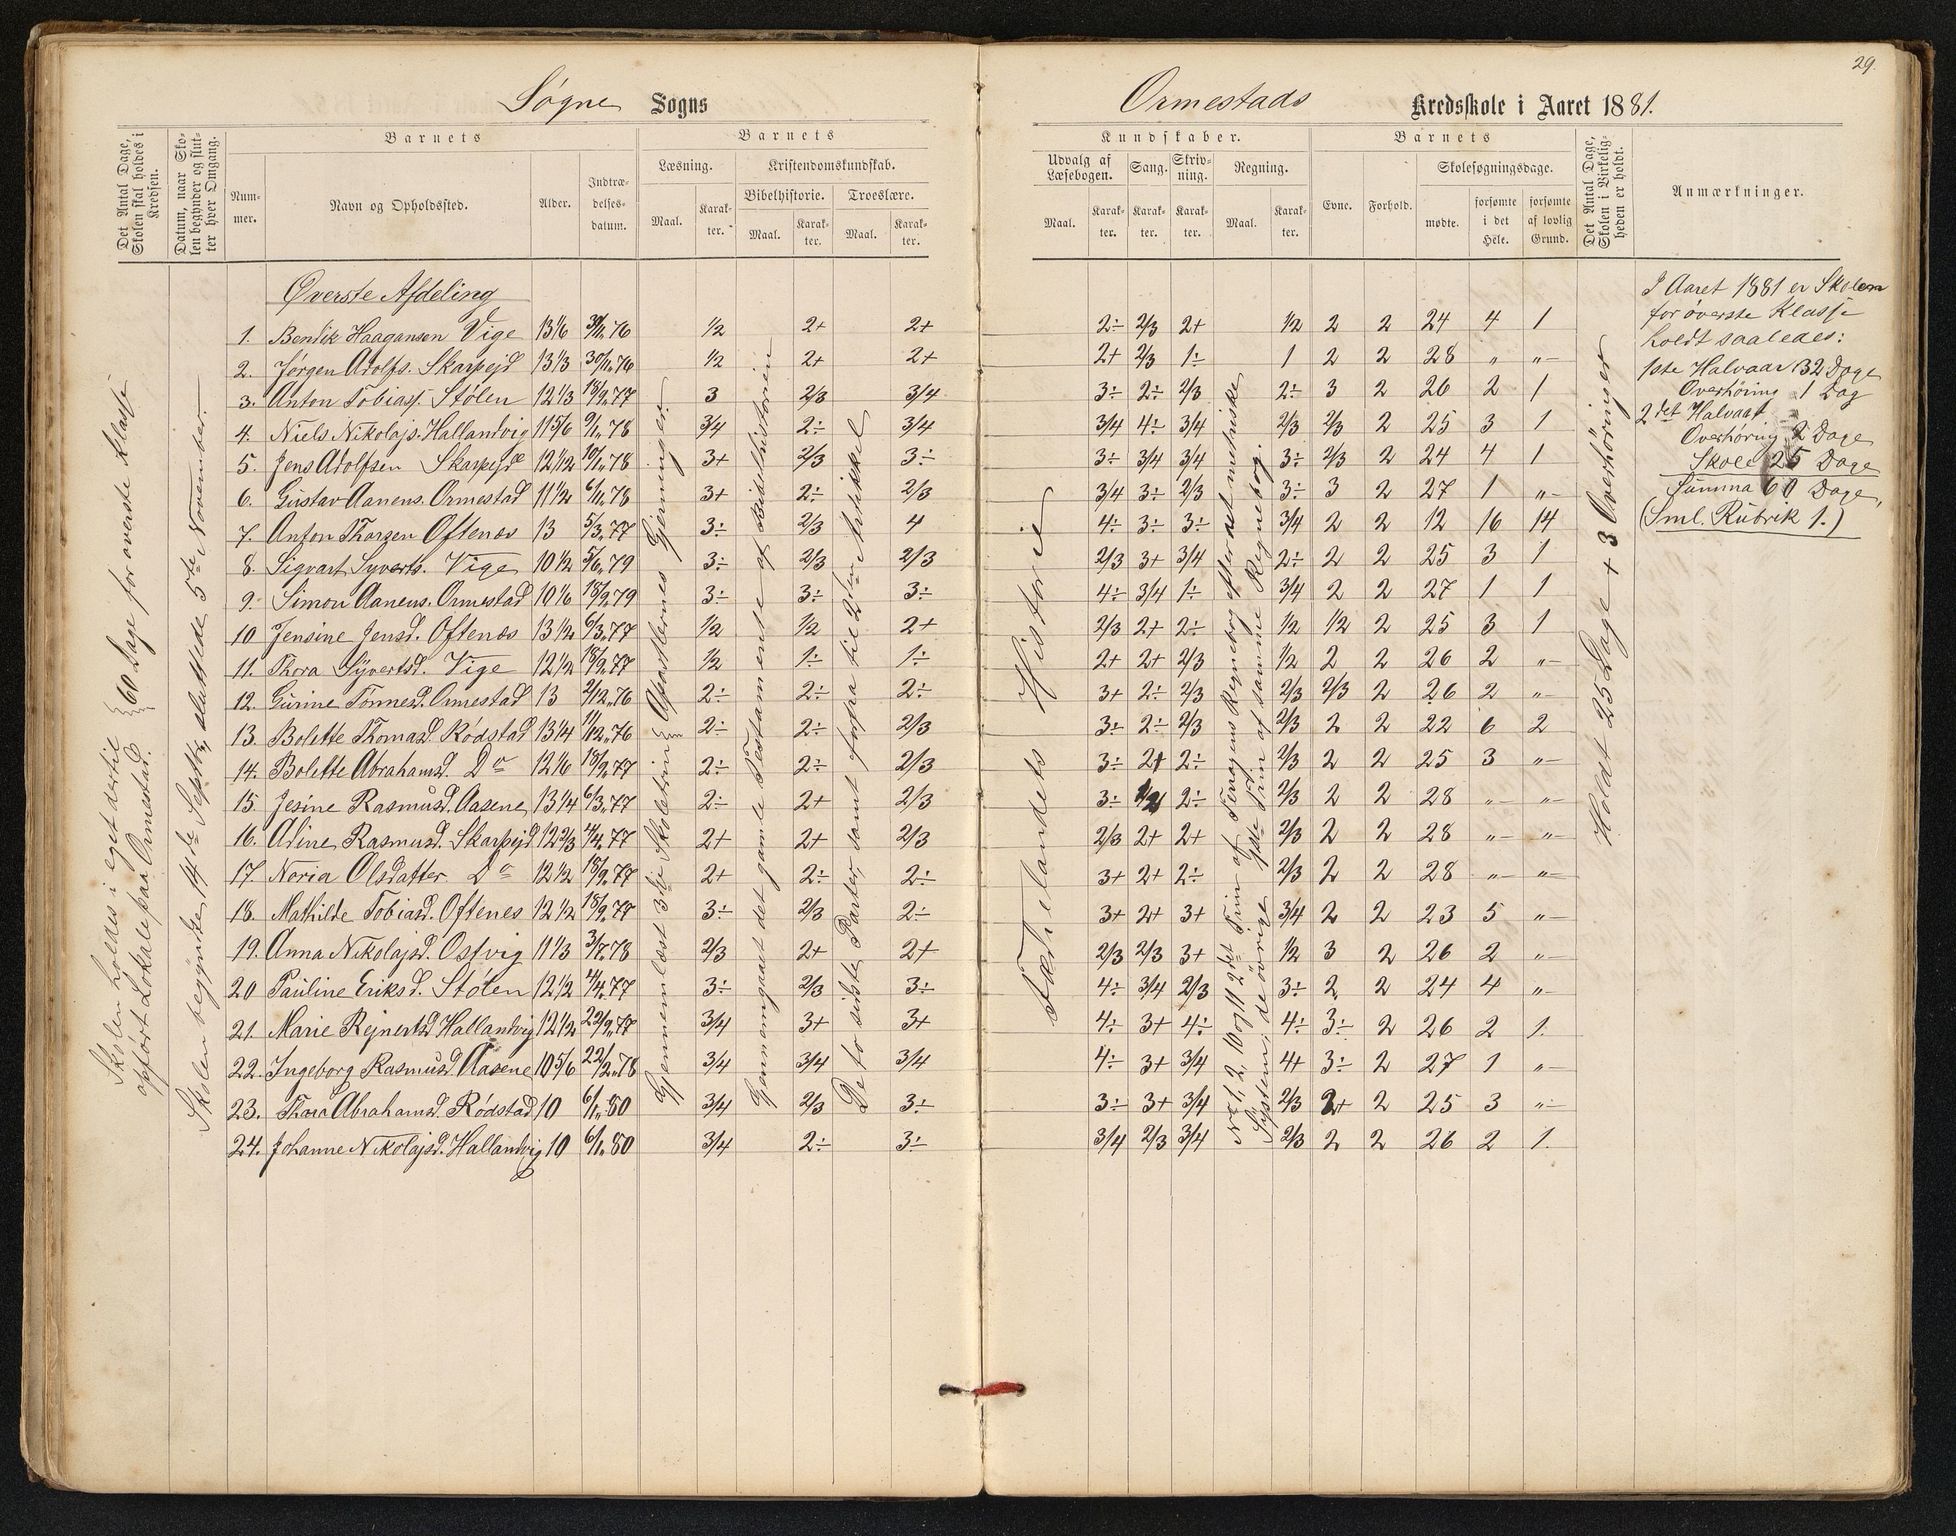 29.
Søgne Sogns
Ormestads Kredsskole i Aaret 1881.
Det Antal Dage, Skolen skal holdes i Kredsen.
Datum, naar Skolen begynder og slutter hver Omgang.
Barnets
Nummer.
Navn og Opholdssted.
Alder.
Indtrædelsesdatum.
Barnets
Læsning.
Maal.
Karakter.
Kristendomskundskab.
Bibelhistorie.
Maal.
Karakter.
Troeslære.
Maal.
Karakter.
Kundskaber.
Udvalg af Læsebogen.
Maal.
Karakter.
Sang.
Karakter.
Skrivning.
Karakter.
Regning.
Maal.
Karakter.
Barnets
Evne.
Forhold.
Skolesøgningsdage.
mødte.
forsømte i det Hele.
forsømte af lovlig Grund.
Det Antal Dage, Skolen i Virkeligheden er holdt.
Anmærkninger.
Skolen holdes i eget dertil {60 Dage for øverste Klasse
opført Lokale paa Ormestad.
Skolen begyndte 14de Septbr, sluttede 5te November.
Øverste Afdeling
1. Bendik Haagansen Vige 13 1/6 30/11.76 1/2 2+ 2+ 2÷ 2/3 2+ 1/2 2 2 24 4 1
2. Jørgen Adolfs. Skarpejd 13 1/3 30/11.76 1/2 2+ 2+ 2+ 2/3 1÷ 1 2 2 28 " "
3. Anton Tobiass. Stølen 12 1/3 18/9.77 3 2/3 3/4 3÷ 2÷ 2/3 2÷ 3 2 26 2 1
4. Niels Nikolajs. Hallandvig 11 5/6 9/1.78 3/4 2÷ 3/4 3/4 4÷ 3/4 2/3 2/3 2 25 3 1
5. Jens Adolfsen Skarpejd 12 1/12 10/1.78 3+ 2/3 3÷ 3÷ 3/4 3/4 3÷ 2/3 2 24 4 1
6. Gustav Aanens. Ormestad 11 1/2 6/11.78 3+ 2÷ 2/3 3/4 3÷ 2/3 3÷ 3 2 27 1 "
7. Anton Thorgen Oftenæs 13 5/3.77 3÷ 2/3 4 4÷ 3÷ 3÷ 3/4 2 2 12 16 14
8. Sigvart Syverts. Vige 10 1/2 5/6.79 3÷ 2/3 2/3 2/3 3+ 3/4 2÷ 2 2 25 3 1
9. Simon Aanens. Ormestad 10 1/6 18/9.79 3÷ 3÷ 3÷ 4÷ 3/4 1÷ 3/4 2 2 27 1 1
10 Jensine Jensd. Oftenæs 13 1/2 6/3.77 1/2 1/2 2+ 2/3 2+ 2÷ 1/2 1/2 2 25 3 1
11. Thora Syvertsd. Vige 12 1/2 18/9.77 1/2 1÷ 1÷ 2+ 2+ 2/3 1/2 2 2 26 2 "
12. Gurine Tønnesd. Ormestad 13 2/12.76 2÷ 2÷ 2÷ 3+ 2÷ 2/3 2/3 2/3 2 26 2 "
13. Bolette Thomasd. Rødstad 13 1/4 11/12.76 2÷ 2÷ 2/3 3÷ 2÷ 2/3 2/3 2 2 22 6 2
14. Bolette Abrahamsd. Do 12 1/6 18/9.77 2÷ 2÷ 2/3 3÷ 2+ 2÷ 2/3 2 2 25 3 "
15. Jesine Rasmusd. Aasene 13 1/4 6/3.77 2÷ 2+ 2/3 3÷ 1/2 2÷ 2/3 2 2 28 " "
16. Adine Rasmusd. Skarpejd 12 2/3 4/4.77 2+ 2+ 2/3 2/3 2+ 2+ 2/3 2 2 28 " "
17. Noria Olsdatter Do 12 1/2 18/9.77 2+ 2÷ 2÷ 3+ 2+ 2÷ 2/3 2 2 28 " "
18. Mathilde Tobiasd. Oftenes 12 1/2 18/9.77 3÷ 2/3 2÷ 3+ 2+ 3+ 3/4 2 2 23 5 "
19. Anna Nikolajsd. Østvig 11 1/3 3/7.78 2/3 2+ 2+ 2/3 2/3 3+ 1/2 3 2 26 2 "
20 Pauline Eriksd. Stølen 12 1/2 4/4.77 3÷ 2/3 3÷ 4÷ 3/4 2/3 3÷ 2 2 24 4 "
21. Marie Rejnertsd Hallandvig 12 1/2 22/9.77 3/4 3+ 3+ 4÷ 3+ 4÷ 4÷ 3÷ 2 26 2 1.
22. Ingeborg Rasmusd. Aasene 10 5/6 22/2.78 3/4 3/4 3/4 4÷ 3+ 3/4 4+ 3÷ 2 27 1 "
23. Thora Abrahamsd. Rødstad 10 6/1.80 3/4 2/3 3÷ 3÷ 3+ 3/4 2/3 2+ 2 25 3 "
24. Johanne Nikolajsd. Hallandvig 10 6/1.80 3/4 2÷ 3÷ 3/4 2/3 3/4 2/3 2 2 26 2 1.
Gjennemlæst 3die Skoletrin {Apostlernes Gjerninger.
Gjennemgaaet det gamle Testamente af Bibelhistorien
De to sidste Parter, samt forfra til 2den Artikkel
Fædrelandets Historie
No 1, 2, 10 og 11 2det Trin af Regnebog efter det metriske
System, de øvrige 1ste Trin af samme Regnebog.
Holdt 25 Dage + 3 Overhøringer
I Aaret 1881 er Skolen
for øverste Klasse
holdt saaledes:
1ste Halvaar 32 Dage
Overhøring 1 Dag
2det Halvaar
Overhøring 2 Dage
Skole 25 Dage
Summa 60 Dage,
(Sml. Rubrik 1.)